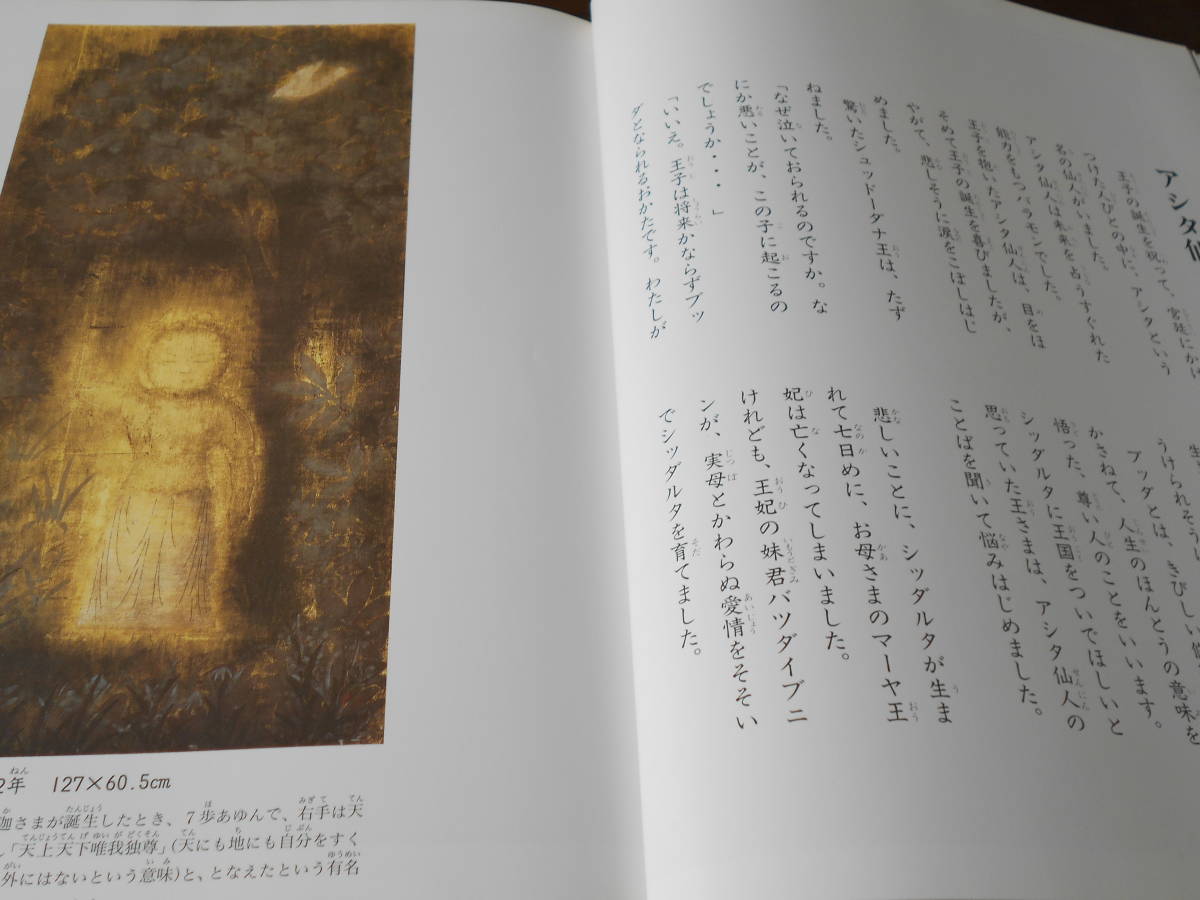 アシタ仙
王子の誕生を祝って、宮廷にかけ
つけた人びとの中に、アシタという
名の仙人がいました。
アシタ仙人は未来を占うすぐれた
能力をもつバラモンでした。
王子を抱いたアシタ仙人は、目をほ
そめて王子の誕生を喜びましたが、
やがて、悲しそうに涙をこぼしはじ
めました。
驚いたシュッドーダナ王は、たず
ねました。
「なぜ泣いておられるのですか。な
にか悪いことが、この子に起こるの
でしょうか・・・」
「いいえ。王子は将来かならずブッ
ダとなられるおかたです。わたしが
生
うけられそうに
ブッダとは、きびしい修
かさねて、人生のほんとうの意味を
悟った、尊い人のことをいいます。
シッダルタに王国をついでほしいと
思っていた王さまは、アシタ仙人の
ことばを聞いて悩みはじめました。
悲しいことに、シッダルタが生ま
れて七日めに、お母さまのマーヤ王
妃は亡くなってしまいました。
けれども、王妃の妹君バツダイブニ
ンが、実母とかわらぬ愛情をそそい
でシッダルタを育てました。
2年 127×60.5cm
迦さまが誕生したとき、7歩あゆんで、右手は天
「天上天下唯我独尊」(天にも地にも自分をすく
外にはないという意味)と、となえたという有名